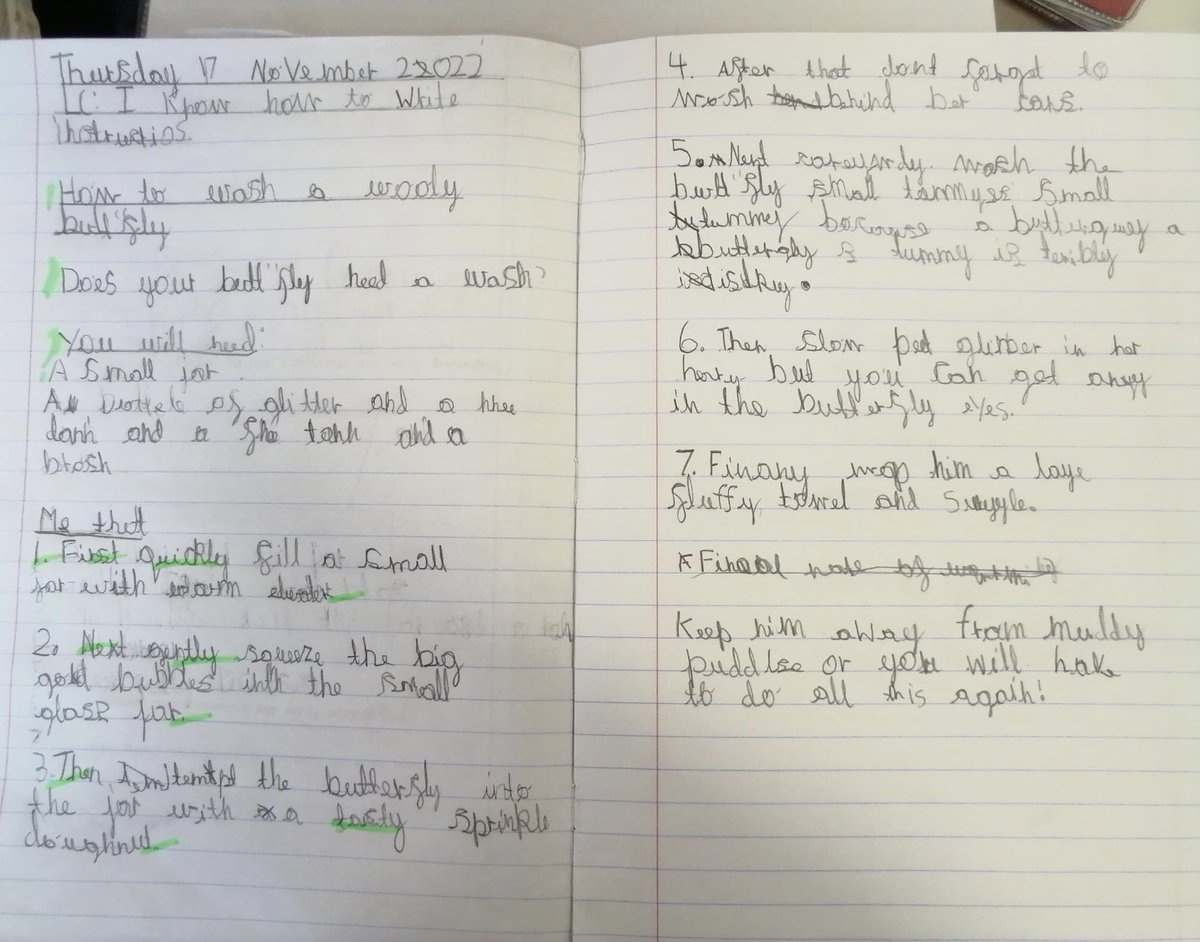 Thursday 17 November 22022
LC: I know how to write
instructios.
How to wash a wooly
butt'fly
Does your butt'fly need a wash?
You will need:
A small jar.
A bottele of glitter and a
and a and a
brosh
Me thet
1. First quickly fill a small
jar with warm
2. Next gently sqweze the big
gold bubbles inth the small
glass jar.
3. Then temtpt the butterfly into
the jar with a tasty sprinkle
doughnut
4. After that dont forgot to
wosh behind her ears.
5. Next wash the
butt'fly small small
tummey because a
buttergly s tummy is terribly
6. Then slow pet glitber in her
but you can get
in the butterfly eyes.
7. Finany wrap him a large
fluffy towel and
Final note of
Keep him away from muddy
puddlse or you will have
to do all this again!